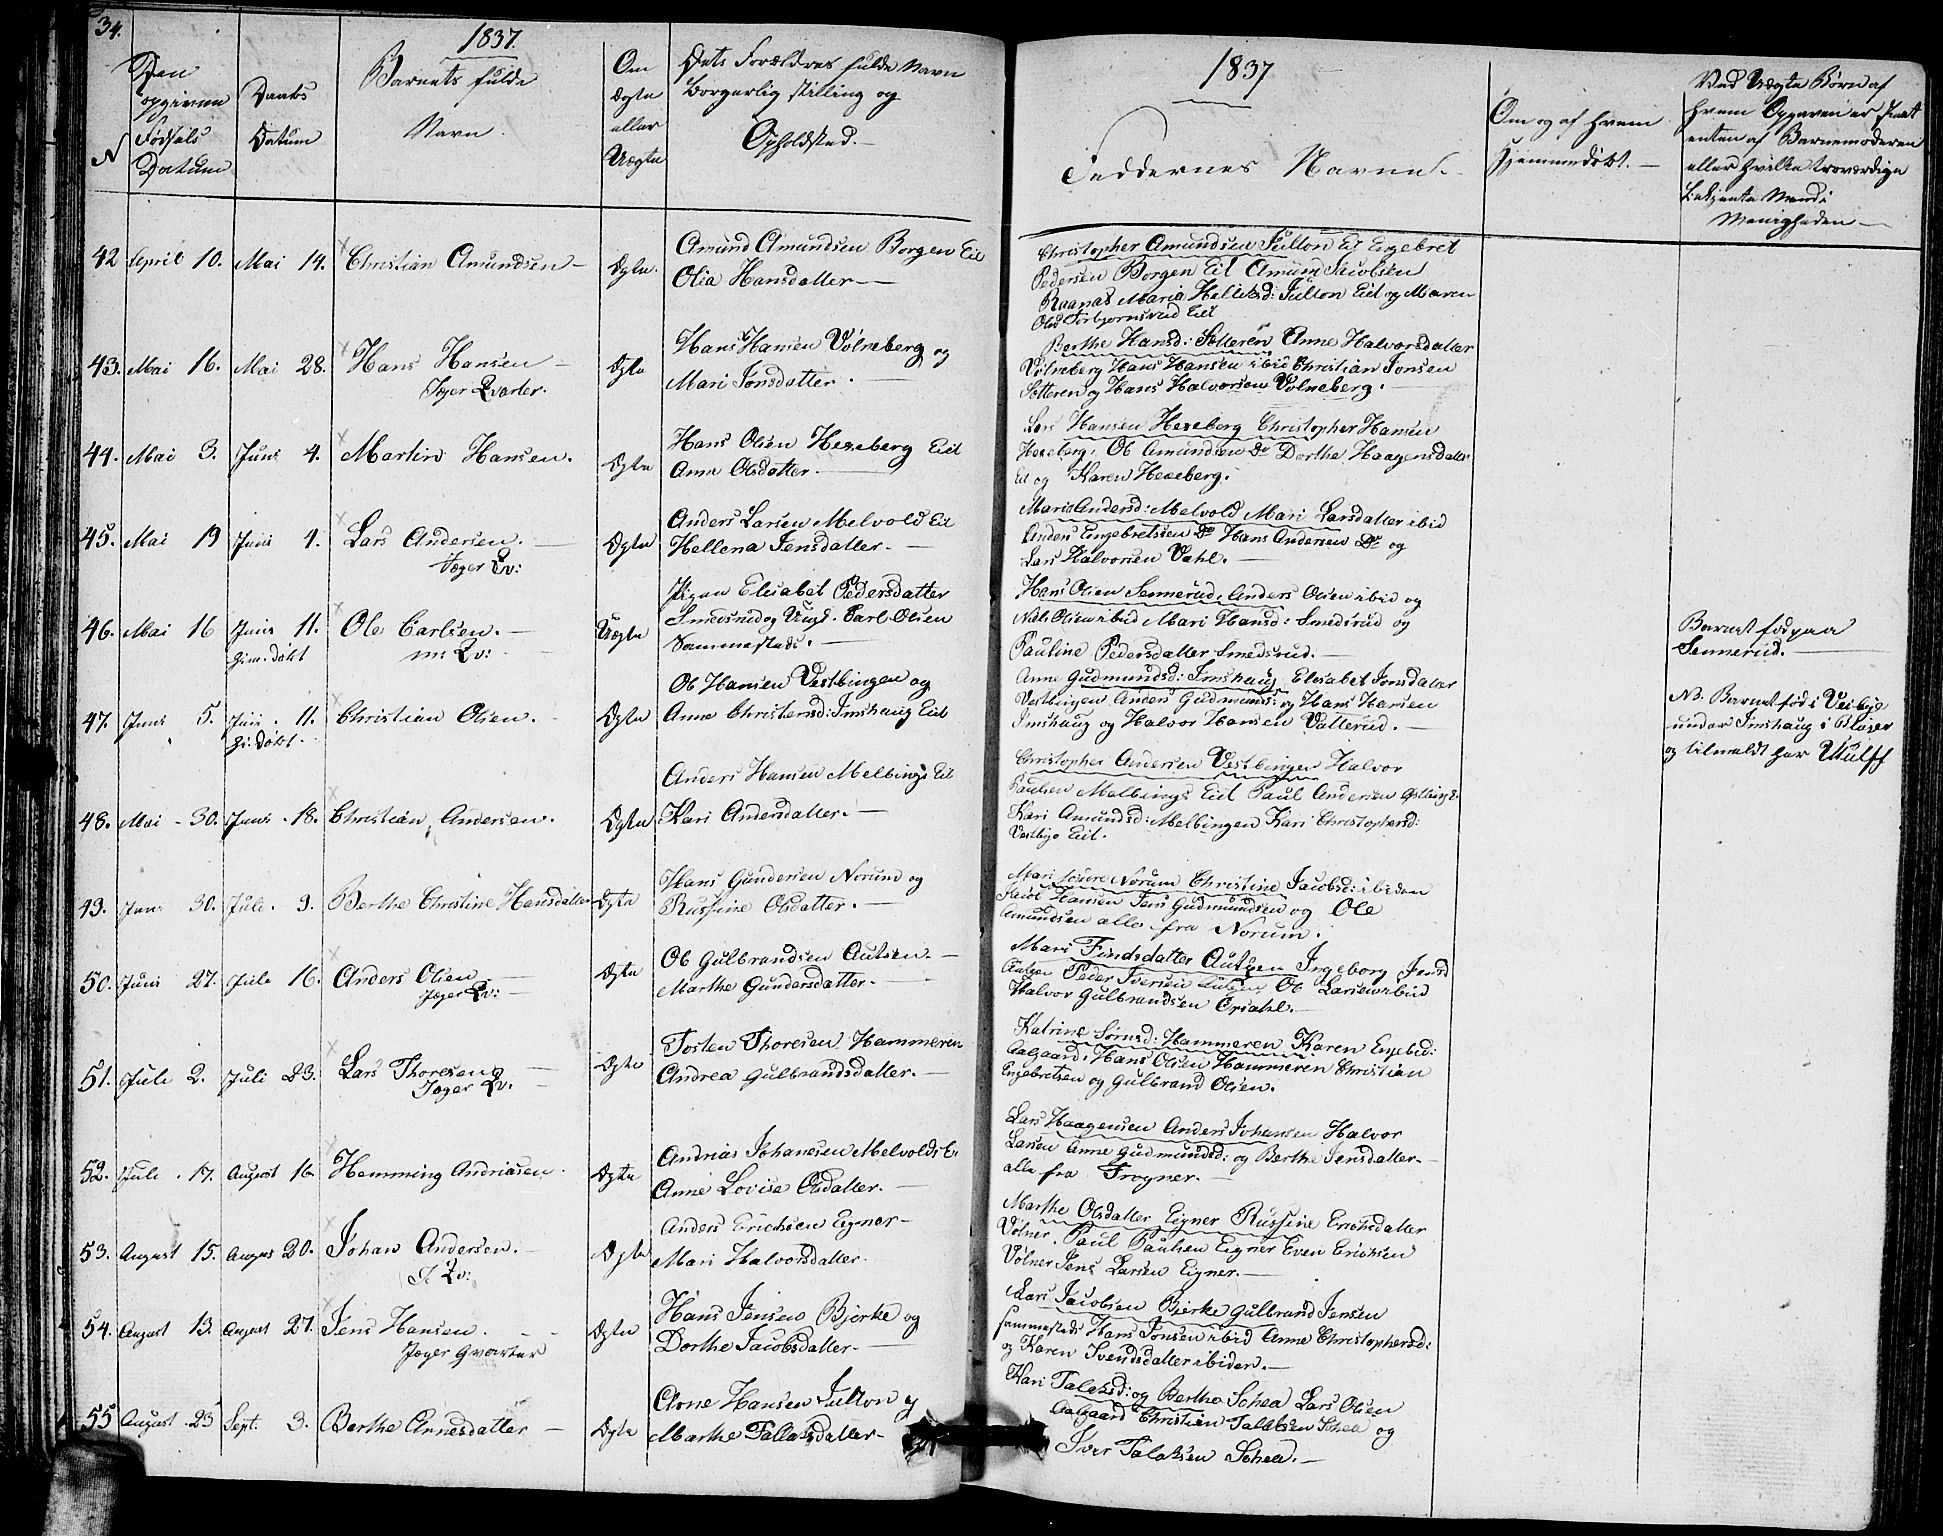 34.
1837.
N
Den
opgivne
Fødsels
Datum
Daabs
Datum
Barnets fulde
Navn.
Om
Ægte
eller
Uægte
Dets Forældres fulde Navn
Borgerlig stilling og
Opholdsted.
42 April 10. Mai 14. Christian Amundsen Ægte. Amund Amundsen Borgen Eit
Olia Hansdatter
43. Mai 16. Mai 28. Hans Hansen Ægte Hans Hansen Volneberg og
Jæger Qvarter. Mari Jonsdatter.
44. Mai 3. Juni 4. Martin Hansen. Ægte Hans Olsen Hexeberg Eit
Anne Olsdatter.
45. Mai 19 Juni 4. Lars Andersen. Ægte Anders Larsen Melvold Eit
Jæger Qv: Hellena Jensdatter.
46. Mai 16 Juni 11. Ole Carlsen. Uægte Pigen Elisabet Pedersdatter
Smedsrud og Ung. Carl Olsen
Hjm. døbt Qv: Sammesteds.
47. Juni 5. Juni 11. Christian Olsen. Ægte Ole Hansen Vestbingen og
Hj: døbt. Anne Christensd: Imshaug Eit
48. Mai 30. Juni 18. Christian Andersen. Ægte Anders Hansen Melbings Eit
Kari Andersdatter.
49. Juni 30. Juli 9. Berthe Christine Hansdatter Ægte Hans Gundersen Norum og
Russine Olsdatter.
50. Juni 27. Juli 16. Anders Olsen Ægte Ole Gulbrandsen Autsen.
Jæger Qv: Marthe Gundersdatter.
51. Juli 2. Juli 23. Lars Thoresen Ægte Tosten Thoresen Hammeren
Jæger Qv. Andrea Gulbrandsdatter.
52. Juli 17. August 16. Hemming Andriasen. Ægte Andrias Johanesen Melvolds E.
Anne Lovise Olsdatter.
53. August 15. August 20. Johan Andersen. Ægte Anders Erichsen Eigner
J Qv: Mari Halvorsdatter.
54. August 13. August 27. Jens Hansen. Ægte Hans Jensen Bjerke og
Jæger Qvarter Dorthe Jacobsdatter
55 August 23 Sept. 3. Berthe Arnesdatter Ægte Arne Hansen Julton og
Marthe Tallaksdatter
1837
Faddernes Navne.
Om og af hvem
Hjemmedøbt.
Ved Uægte Børn af
hvem Opgaven er skeet
enten af Barnemoderen
eller hvilke troværdige
bekjente Mænd i
Menigheden
Christopher Amundsen Julton Eit Engebret
Pedersen Borgen Eit Amund Jacobsen
Raanas Maria Helliksd: Julton Eit og Maren
Olsd Torbjørnsrud Eit
Berthe Hansd: Sotteren Anne Halvorsdatter
Volneberg Hans Hansen ibid Christian Jonsen
Sotteren og Hans Halvorsen Volneberg.
Lars Hansen Hexeberg Christopher Hansen
Hexeberg. Ole Amundsen Do Dorthe Haagensdatter
Eit og Karen Hexeberg.
Maria Andersd: Melvold Mari Larsdatter ibid
Anders Engebretsen Do Hans Andersen Do og
Lars Halvorsen Vahl.
Hans Olsen Sennerud, Anders Olsen ibid og
Nils Olsen ibid Mari Hansd: Smedsrud og
Pauline Pedersdatter Smedsrud.
Barnet fød paa
Sennerud.
Anne Gudmundsd: Imshaug Elisabet Jonsdatter
Vestbingen Anders Gudmunds: og Hans Hansen
Imshaug og Halvor Hansen Vatterud.
NB. Barnet fød i Veibye
under Imshaug i
og tilmeldt her Wulff
Christopher Andersen Vestbingen Halvor
Paulsen Melbings Eit Paul Andersen Østbing E.
Kari Amundsd: Melbingen Kari Christophersd:
Vestbye Eit.
Mari Norum Christine Jacobsd: ibidem
Jacob Hansen Jens Gudmundsen og Ole
Amundsen alle fra Norum.
Mari Findsdatter Autsen Ingeborg Jensd
Autsen Peder Iversen Autsen Ole Larsen ibid
Halvor Gulbrandsen
Katrine Hammeren Karen Engebd:
Aalgaard, Hans Olsen Hammeren Christian
Engebretsen og Gulbrand Olsen.
Lars Haagensen Anders Johansen Halvor
Larsen Anne Gudmundsd: og Berthe Jensdatter
alle fra Frogner.
Marthe Olsdatter Eigner Russine Erichsdatter
Volner. Paul Paulsen Eigner Even Erichsen
Volner Jens Larsen Eigner.
Lars Jacobsen Bjerke Gulbrand Jensen
sammesteds Hans Jonsen ibid Anne Christophersd:
og Karen Svendsdatter ibidem.
Kari Talaksd: og Berthe Schea Lars Olsen
Aalgaard Christian Talaksen Schea og
Iver Talaksen Schea.